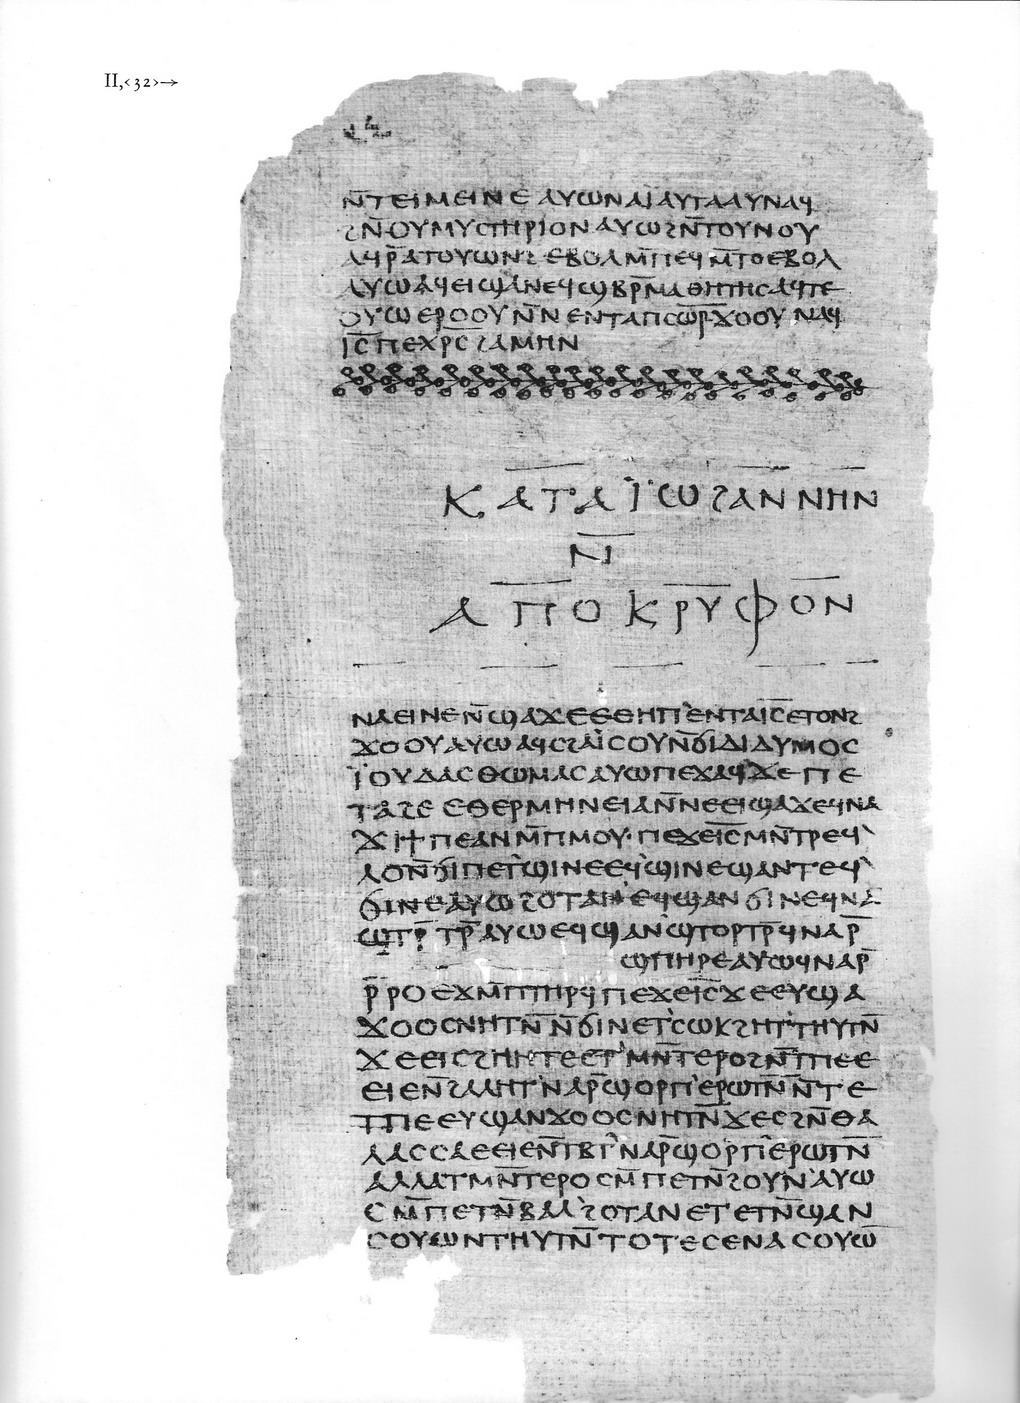 II,<32>→
ⲛ̄ⲧⲉⲓⲙⲉⲓⲛⲉ ⲁⲩⲱ ⲛⲁⲓ̈ ⲁⲩⲧⲁⲁⲩ ⲛⲁϥ
ϩⲛ̄ ⲟⲩⲙⲩⲥⲧⲏⲣⲓⲟⲛ ⲁⲩⲱ ϩⲛ̄ ⲧⲟⲩⲛⲟⲩ
ⲁϥⲣ̄ ⲁⲧⲟⲩⲱⲛϩ ⲉⲃⲟⲗ ⲙ̄ⲡⲉϥⲙ̄ⲧⲟ ⲉⲃⲟⲗ
ⲁⲩⲱ ⲁϥⲉⲓ ϣⲁ ⲛⲉϥϣⲃⲣ̄ⲙⲁⲑⲏⲧⲏⲥ ⲁϥⲧⲉ
ⲟⲩⲱ ⲉⲣⲟⲟⲩ ⲛ̄ⲛⲉⲛⲧⲁ ⲡⲥⲱⲣ̄ ϫⲟⲟⲩ ⲛⲁϥ
ⲓ̄ⲥ̄ ⲡⲉⲭ̄ⲣ̄ⲥ̄ ϩⲁⲙⲏⲛ
ⲕⲁⲧⲁ ⲓ̈ⲱϩⲁⲛⲛⲏⲛ
ⲛ̄
ⲁⲡⲟⲕⲣⲩⲫⲟⲛ
ⲛⲁⲉⲓ ⲛⲉ ⲛ̄ϣⲁϫⲉ ⲉⲑⲏⲡ ⲉⲛⲧⲁ ⲓ̄ⲥ̄ ⲉⲧⲟⲛϩ
ϫⲟⲟⲩ ⲁⲩⲱ ⲁϥⲥϩⲁⲓ̈ⲥⲟⲩ ⲛ̄ϭⲓ ⲇⲓⲇⲩⲙⲟⲥ
ⲓ̈ⲟⲩⲇⲁⲥ ⲑⲱⲙⲁⲥ ⲁⲩⲱ ⲡⲉϫⲁϥ ϫⲉ ⲡⲉ
ⲧⲁϩⲉ ⲉⲑⲉⲣⲙⲏⲛⲉⲓⲁ ⲛ̄ⲛⲉⲉⲓϣⲁϫⲉ ϥⲛⲁ
ϫⲓ ϯⲡⲉ ⲁⲛ ⲙ̄ⲡⲙⲟⲩ ⲡⲉϫⲉ ⲓ̄ⲥ̄ ⲙⲛ̄ⲧⲣⲉϥ
ⲗⲟ ⲛ̄ϭⲓ ⲡⲉⲧϣⲓⲛⲉ ⲉϥϣⲓⲛⲉ ϣⲁⲛⲧⲉϥ
ϭⲓⲛⲉ ⲁⲩⲱ ϩⲟⲧⲁⲛ ⲉϥϣⲁⲛϭⲓⲛⲉ ϥⲛⲁ
ϣⲧⲣ̄ⲧⲣ̄ ⲁⲩⲱ ⲉϥϣⲁⲛϣⲧⲟⲣⲧⲣ̄ ϥⲛⲁⲣ̄
ϣⲡⲏⲣⲉ ⲁⲩⲱ ϥⲛⲁⲣ̄
ⲣ̄ⲣⲟ ⲉϫⲙ̄ ⲡⲧⲏⲣϥ ⲡⲉϫⲉ ⲓ̄ⲥ̄ ϫⲉ ⲉⲩϣⲁ
ϫⲟⲟⲥ ⲛⲏⲧⲛ̄ ⲛ̄ϭⲓ ⲛⲉⲧⲥⲱⲕ ϩⲏⲧ ⲧⲏⲩⲧⲛ̄
ϫⲉ ⲉⲓⲥϩⲏⲏⲧⲉ ⲉⲧⲙⲛ̄ⲧⲉⲣⲟ ϩⲛ̄ ⲧⲡⲉ ⲉ
ⲉⲓⲉ ⲛ̄ϩⲁⲗⲏⲧ ⲛⲁⲣ̄ ϣⲟⲣⲡ ⲉⲣⲱⲧⲛ̄ ⲛ̄ⲧⲉ
ⲧⲡⲉ ⲉⲩϣⲁⲛϫⲟⲟⲥ ⲛⲏⲧⲛ̄ ϫⲉ ⲥϩⲛ̄ ⲑⲁ
ⲗⲁⲥⲥⲁ ⲉⲉⲓⲉ ⲛ̄ⲧⲃⲧ ⲛⲁⲣ̄ ϣⲟⲣⲡ ⲉⲣⲱⲧⲛ̄
ⲁⲗⲗⲁ ⲧⲙⲛ̄ⲧⲉⲣⲟ ⲥⲙ̄ⲡⲉⲧⲛ̄ϩⲟⲩⲛ ⲁⲩⲱ
ⲥⲙ̄ⲡⲉⲧⲛ̄ⲃⲁⲗ ϩⲟⲧⲁⲛ ⲉⲧⲉⲧⲛ̄ϣⲁⲛ
ⲥⲟⲩⲱⲛ ⲧⲏⲩⲧⲛ̄ ⲧⲟⲧⲉ ⲥⲉⲛⲁⲥⲟⲩⲱ